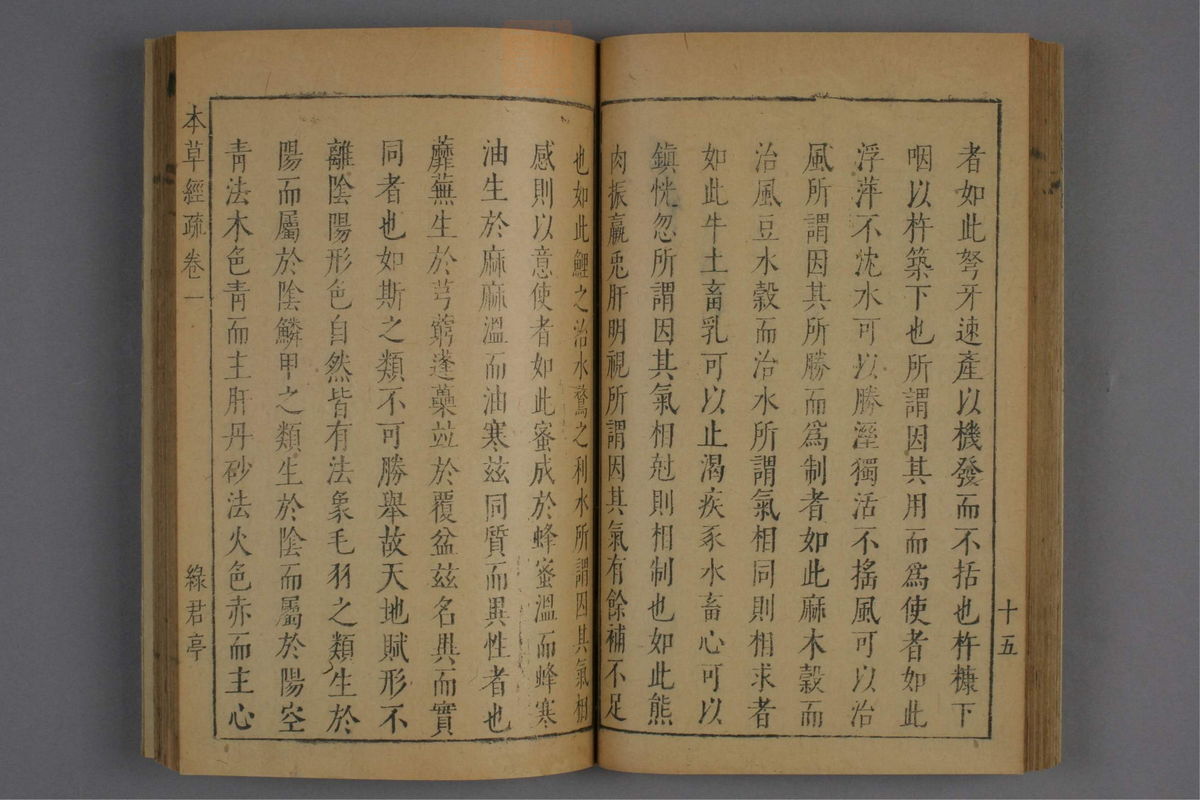 者如此弩牙速產以機發而不括也杵糠下
咽以杵築下也所謂因其用而爲使者如此
浮萍不沈水可以勝酒獨活不搖風可以治
風所謂因其所勝而爲制者如此麻木穀而
治風豆水穀而治水所謂氣相同則相求者
如此牛土畜乳可以止渴疾豕水畜心可以
鎮恍忽所謂因其氣相尅則相制也如此熊
肉振羸兎肝明視所謂因其氣有餘補不足
也如此鯉之治水鶩之利水所謂因其氣相
感則以意使者如此蜜成於蜂蜜溫而蜂寒
油生於麻麻溫而油寒茲同質而異性者也
蘼蕪生於芎藭蓬蘽並於覆盆茲名異而實
同者也如斯之類不可勝舉故天地賦形不
離陰陽形色自然皆有法象毛羽之類生於
陽而屬於陰鱗甲之類生於陰而屬於陽空
青法木色青而主肝丹砂法火色赤而主心
十五
本草經疏 卷一
綠君亭